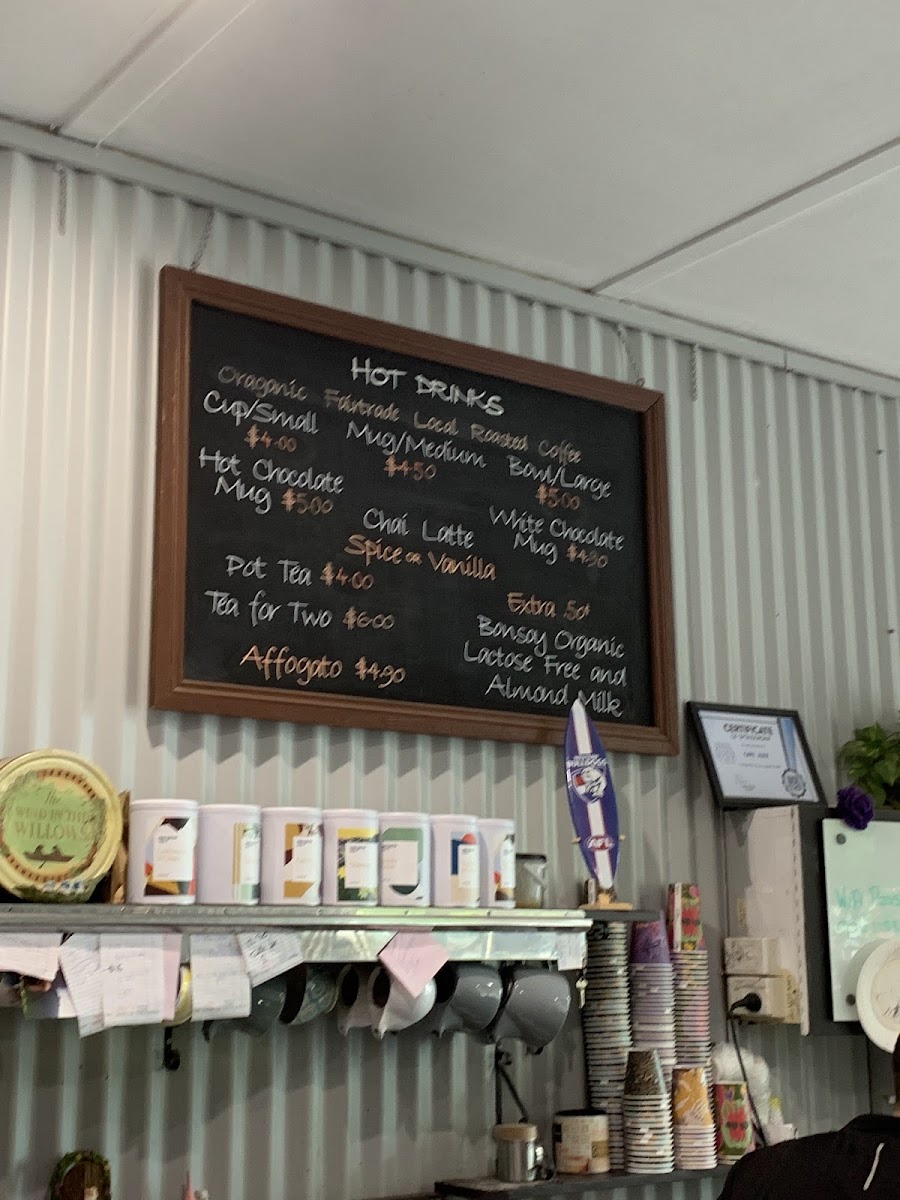 HOT DRINKS
Oraganic Fairtrade Local Roasted Coffee
Cup/Small
$4.00
Mug/Medium
$4.50
Bowl/Large
$5.00
Hot Chocolate
Mug $5.00
Chai Latte
Spice or Vanilla
White Chocolate
Mug $4.90
Pot Tea $4.00
Tea for Two $6.00
Affogato $4.90
Extra 50¢
Bonsoy Organic
Lactose Free and
Almond Milk
The
WIND IN THE
WILLOWS
BULLDOGS
AFL
CERTIFICATE